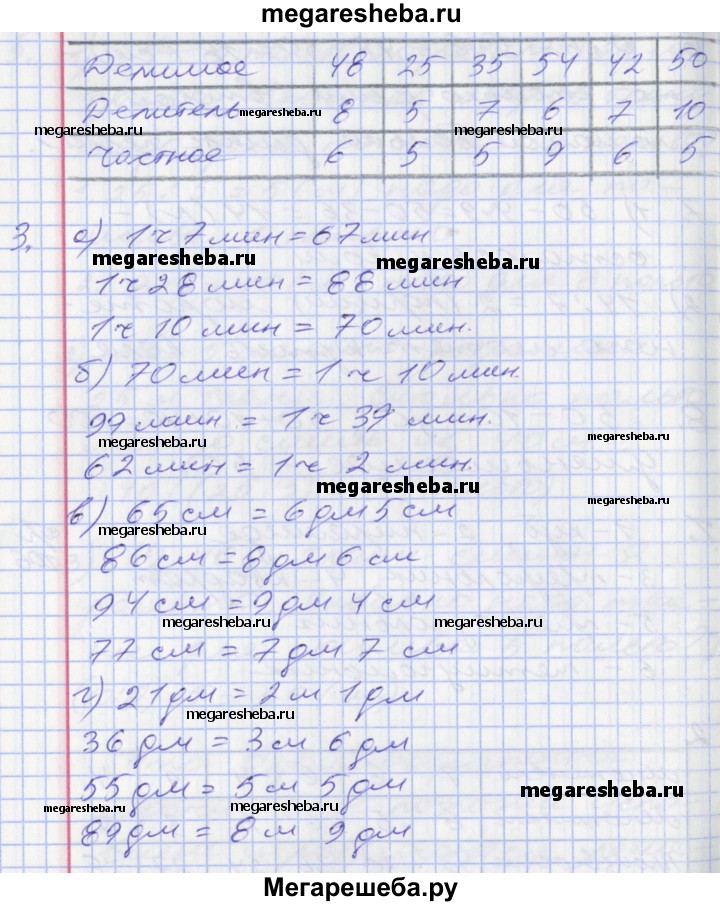 megaresheba.ru
Делимое 48 25 35 54 42 50
Делитель 8 5 7 6 7 10
megaresheba.ru
megaresheba.ru
megaresheba.ru
Частное 6 5 5 9 6 5
3. а) 1 ч 7 мин = 67 мин
megaresheba.ru
megaresheba.ru
1 ч 28 мин = 88 мин
1 ч 10 мин = 70 мин.
б) 70 мин = 1 ч 10 мин.
99 мин = 1 ч 39 мин.
megaresheba.ru
megaresheba.ru
62 мин = 1 ч 2 мин.
megaresheba.ru
megaresheba.ru
в) 65 см = 6 дм 5 см
megaresheba.ru
86 см = 8 дм 6 см
94 см = 9 дм 4 см
megaresheba.ru
megaresheba.ru
77 см = 7 дм 7 см
г) 21 дм = 2 м 1 дм
megaresheba.ru
36 дм = 3 м 6 дм
55 дм = 5 м 5 дм
megaresheba.ru
megaresheba.ru
megaresheba.ru
89 дм = 8 м 9 дм
Мегарешеба.ру